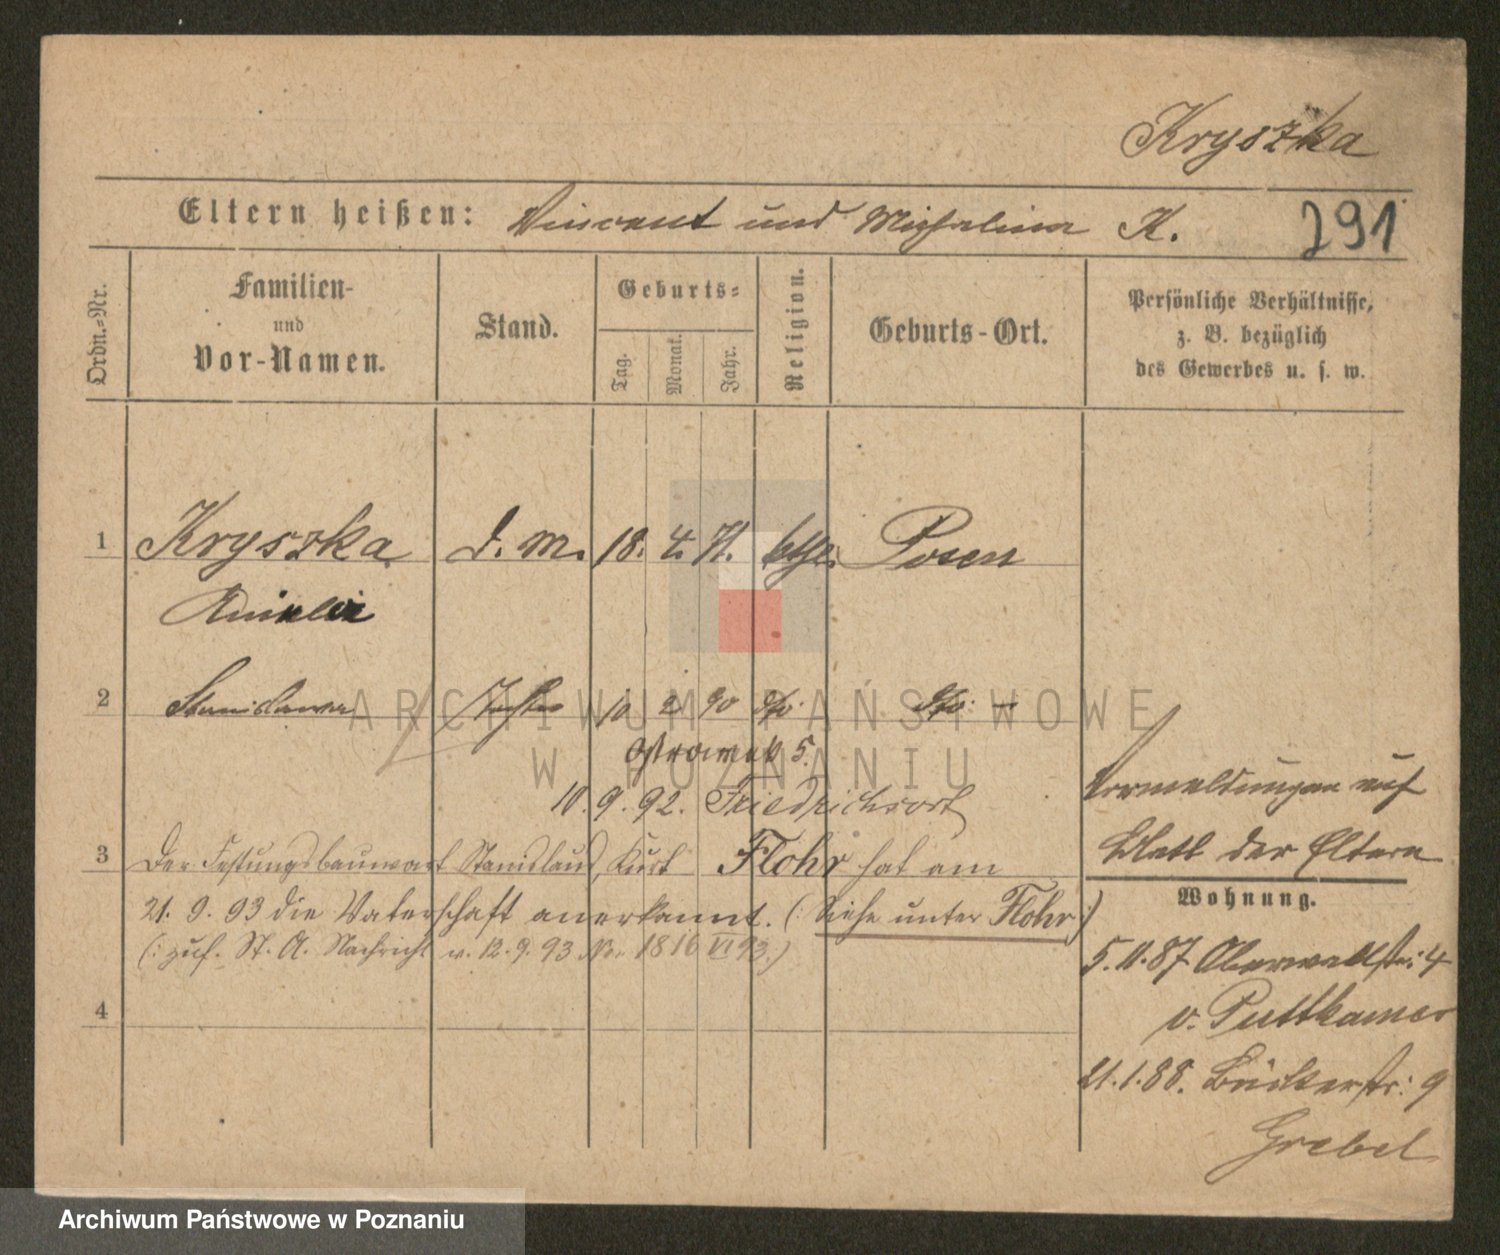 Kryszka
Eltern heißen: Vincent und Michalina K.
291
Ordn.-Nr.
Familien-
und
Vor-Namen.
Stand.
Geburts-
Tag.
Monat.
Jahr.
Religion.
Geburts-Ort.
Persönliche Verhältnisse,
z. B. bezüglich
des Gewerbes u. s. w.
1 Kryszka d. M. 18. 4. 71. kth. Posen
2 Stanislawa Tochter 10 2 90 dto. dto. —
Ostrowek 5.
10. 9. 92. Friedrichsort
3 Der Festungsbauwart Stanislaus, Kurt Flohr hat am
21. 9. 93 die Vaterschaft anerkannt. (: Siehe unter Flohr :)
(: zuf. St. A. Nachricht v. 12. 9. 93 No. 1816 VI 93.)
4
Vermeldungen auf
Blatt der Eltern
Wohnung.
5. 11. 87 Oberwallstr: 4
v. Puttkamer
21. 1. 88. Bäckerstr: 9
Grebel
ARCHIWUM PAŃSTWOWE
W POZNANIU
Archiwum Państwowe w Poznaniu